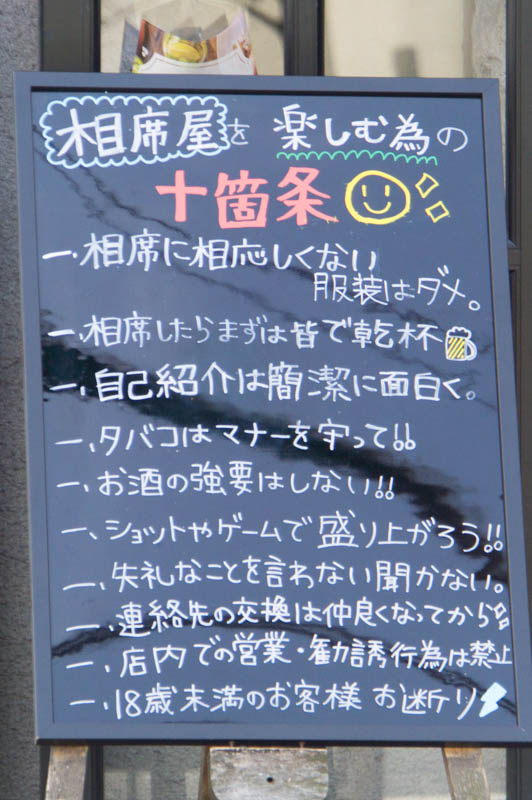 相席屋を 楽しむ為の
十箇条
一、相席に相応しくない
服装はダメ。
一、相席したらまずは皆で乾杯
一、自己紹介は簡潔に面白く。
一、タバコはマナーを守って!!
一、お酒の強要はしない!!
一、ショットやゲームで盛り上がろう!!
一、失礼なことを言わない聞かない。
一、連絡先の交換は仲良くなってから
一、店内での営業・勧誘行為は禁止
一、18歳未満のお客様 お断り